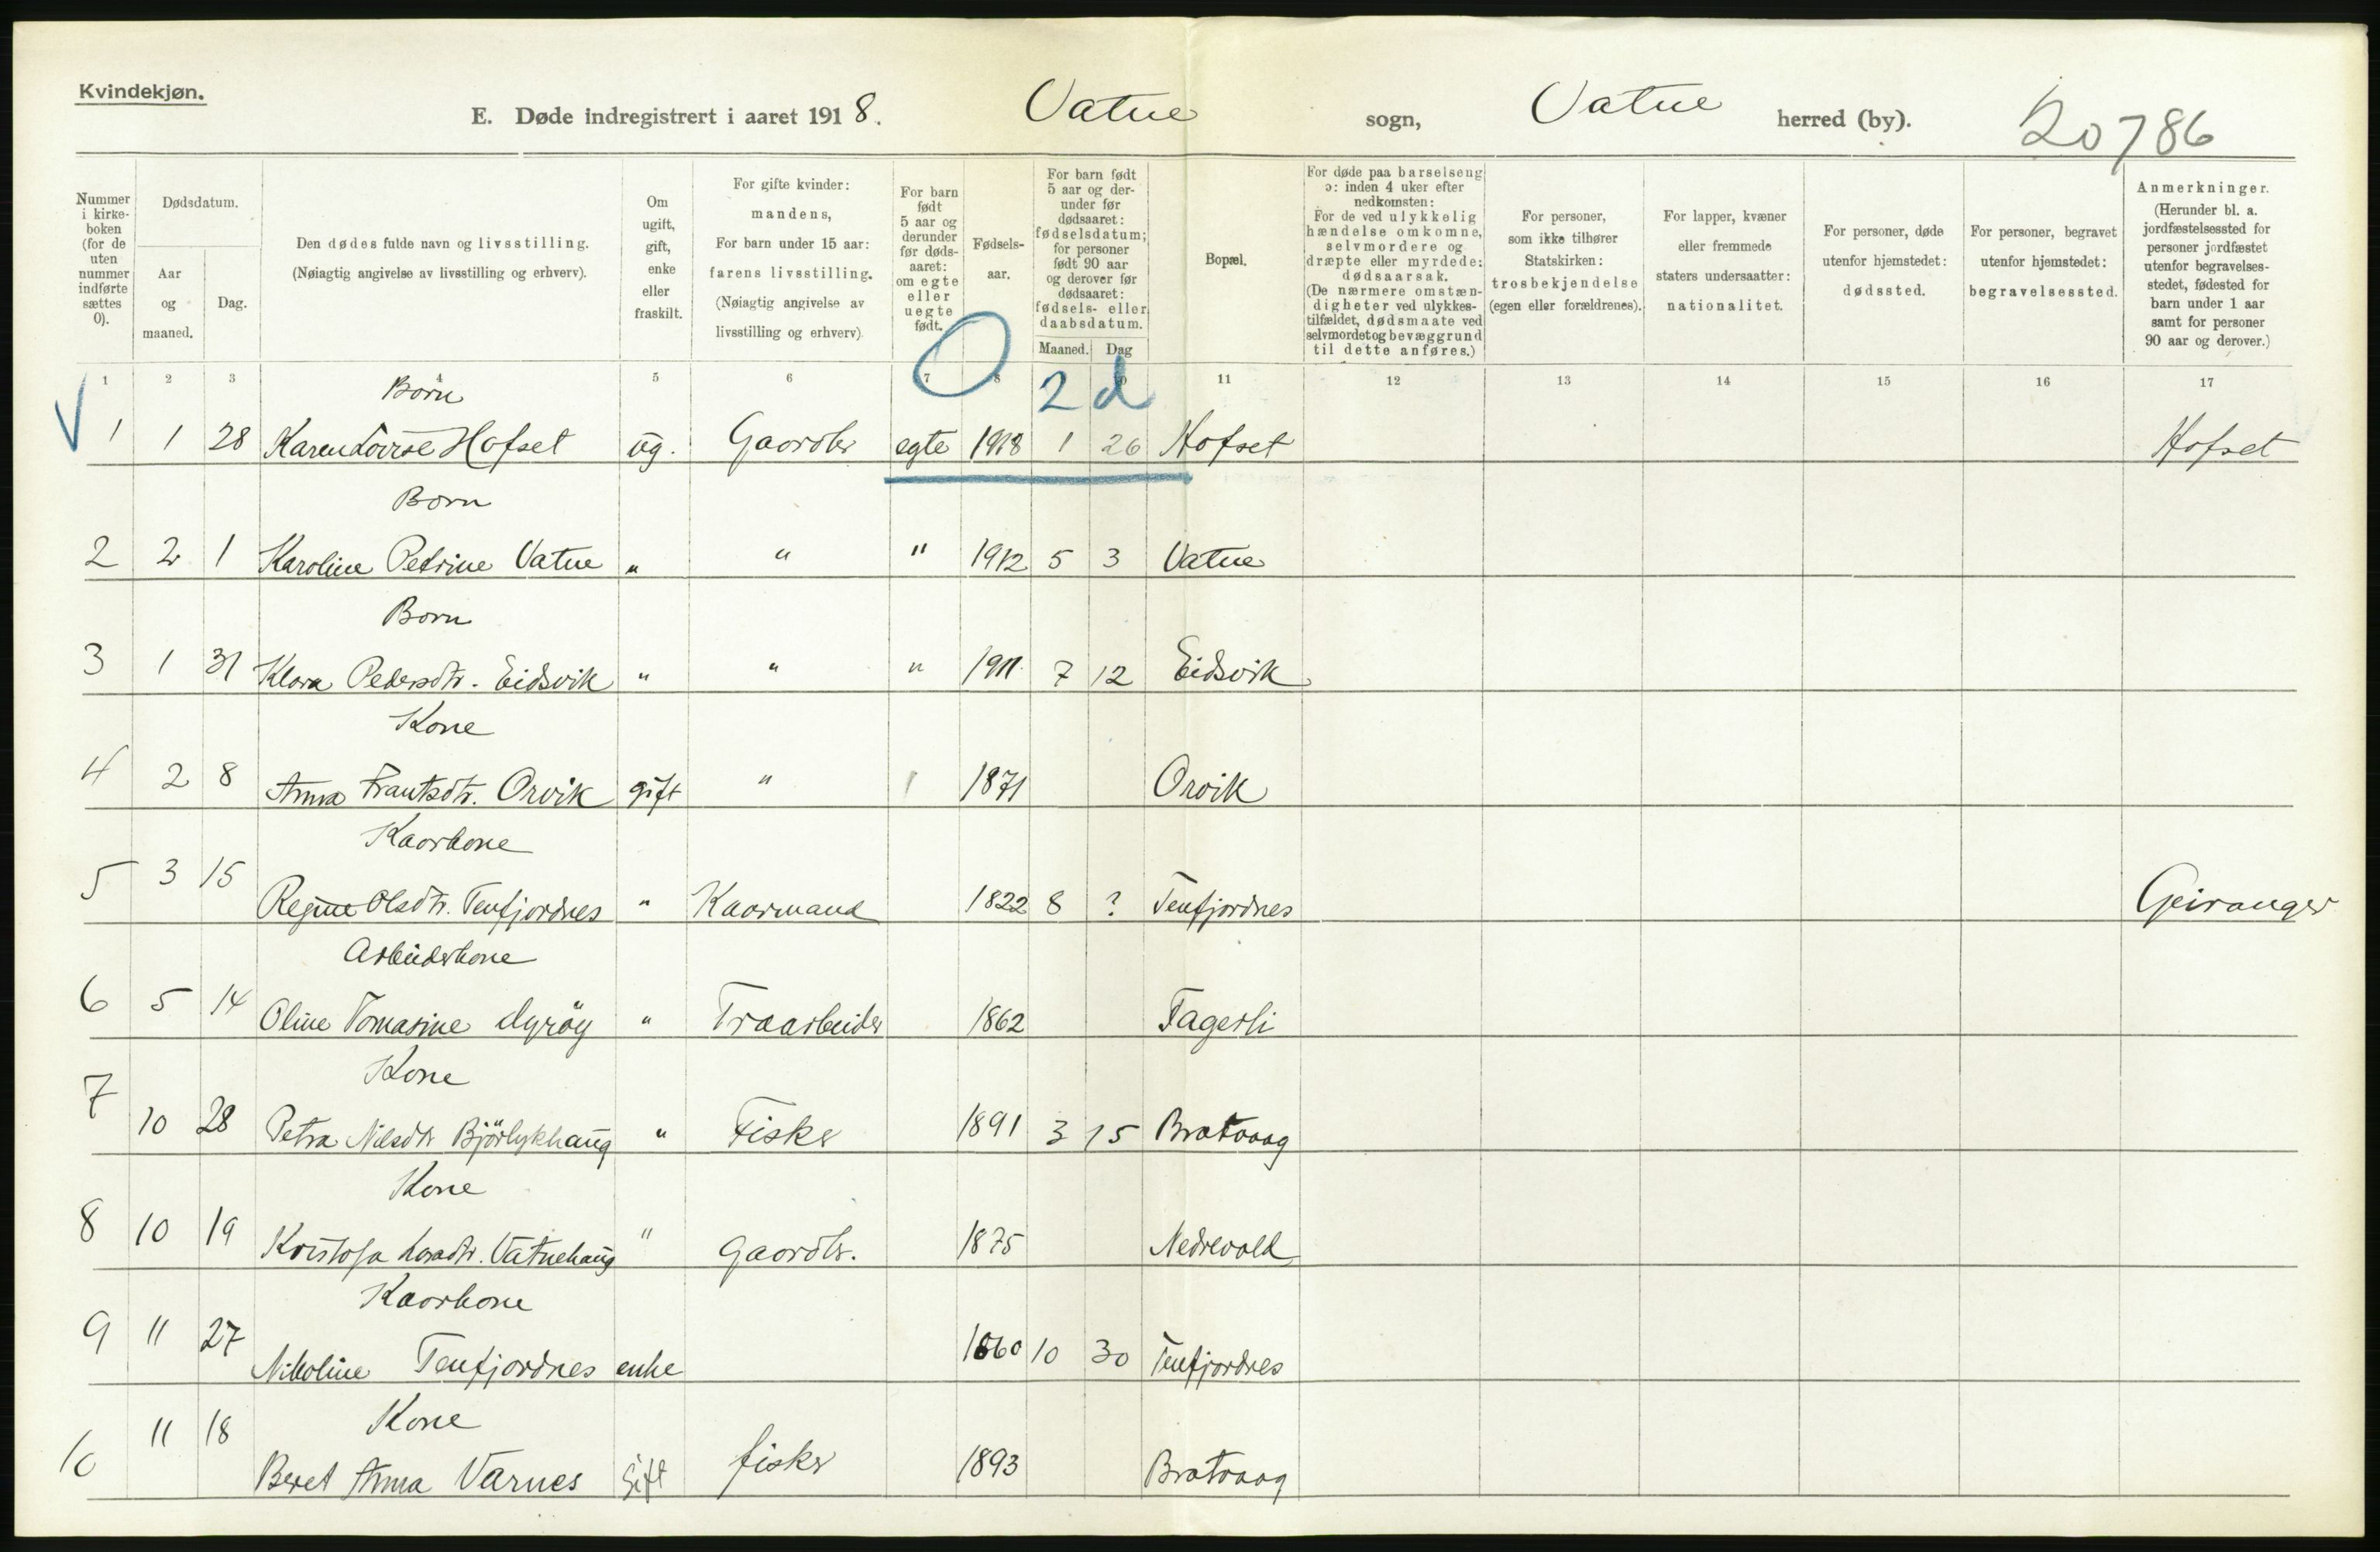 Kvindekjøn.
E. Døde indregistrert i aaret 1918. Vatne sogn, Vatne herred (by). 20786
Nummer i kirke-boken (for de uten nummer indførte sættes 0).
Dødsdatum.
Aar og maaned.
Dag.
Den dødes fulde navn og livsstilling.
(Nøiagtig angivelse av livsstilling og erhverv).
Om ugift, gift, enke eller fraskilt.
For gifte kvinder: mandens,
For barn under 15 aar: farens livsstilling.
(Nøiagtig angivelse av livsstilling og erhverv)
For barn født 5 aar og derunder før døds-aaret: om egte eller uegte født.
Fødsels-aar.
For barn født 5 aar og der-under før dødsaaret: fødselsdatum; for personer født 90 aar og derover før dødsaaret: fødsels- eller daabsdatum.
Maaned. Dag
Bopæl.
For døde paa barselseng ɔ: inden 4 uker efter nedkomsten:
For de ved ulykkelig hændelse omkomne, selvmordere og dræpte eller myrdede: dødsaarsak.
(De nærmere omstæn-digheter ved ulykkes-tilfældet, dødsmaate ved selvmordet og bevæggrund til dette anføres.)
For personer, som ikke tilhører Statskirken: trosbekjendelse (egen eller forældrenes).
For lapper, kvæner eller fremmede staters undersaatter: nationalitet.
For personer, døde utenfor hjemstedet: dødssted.
For personer, begravet utenfor hjemstedet: begravelsessted.
Anmerkninger.
(Herunder bl. a. jordfæstelsessted for personer jordfæstet utenfor begravelses-stedet, fødested for barn under 1 aar samt for personer 90 aar og derover.)
1 2 3 4 5 6 7 8 11 12 13 14 15 16 17
0 2 d
Born
1 1 28 Karen Lovise Hofset ug. Gaardbr egte 1918 1 26 Hofset Hofset
Born
2 2 1 Karoline Petrine Vatne " " " 1912 5 3 Vatne
Born
3 1 31 Klara Pedersdtr. Eidsvik " " " 1911 7 12 Eidsvik
Kone
4 2 8 Anna Frantsdtr. Orvik gift " 1871 Orvik
Kaarkone
5 3 15 Regine Olsdtr. Tenfjordnes " Kaarmand 1822 8 ? Tenfjordnes Geiranger
Arbeiderkone
6 5 14 Oline Tomasine Myröy " Traarbeider 1862 Fagerli
Kone
7 10 28 Petra Nilsdtr Björlykhaug " Fisker 1891 3 15 Bratvaag
Kone
8 10 19 Kristofa Larsdtr. Vatnehaug " Gaardbr. 1875 Nedrevold
Kaarkone
9 11 27 Nikoline Tenfjordnes enke 1860 10 30 Tenfjordnes
Kone
10 11 18 Beret Anna Varnes Gift fisker 1893 Bratvaag